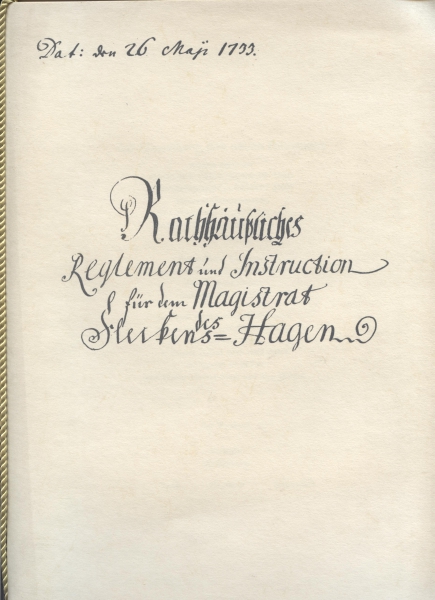 Dat: den 26 Maji 1799.
Rathhäußliches
Reglement und Instruction
für dem Magistrat
des
Fleckens= Hagen